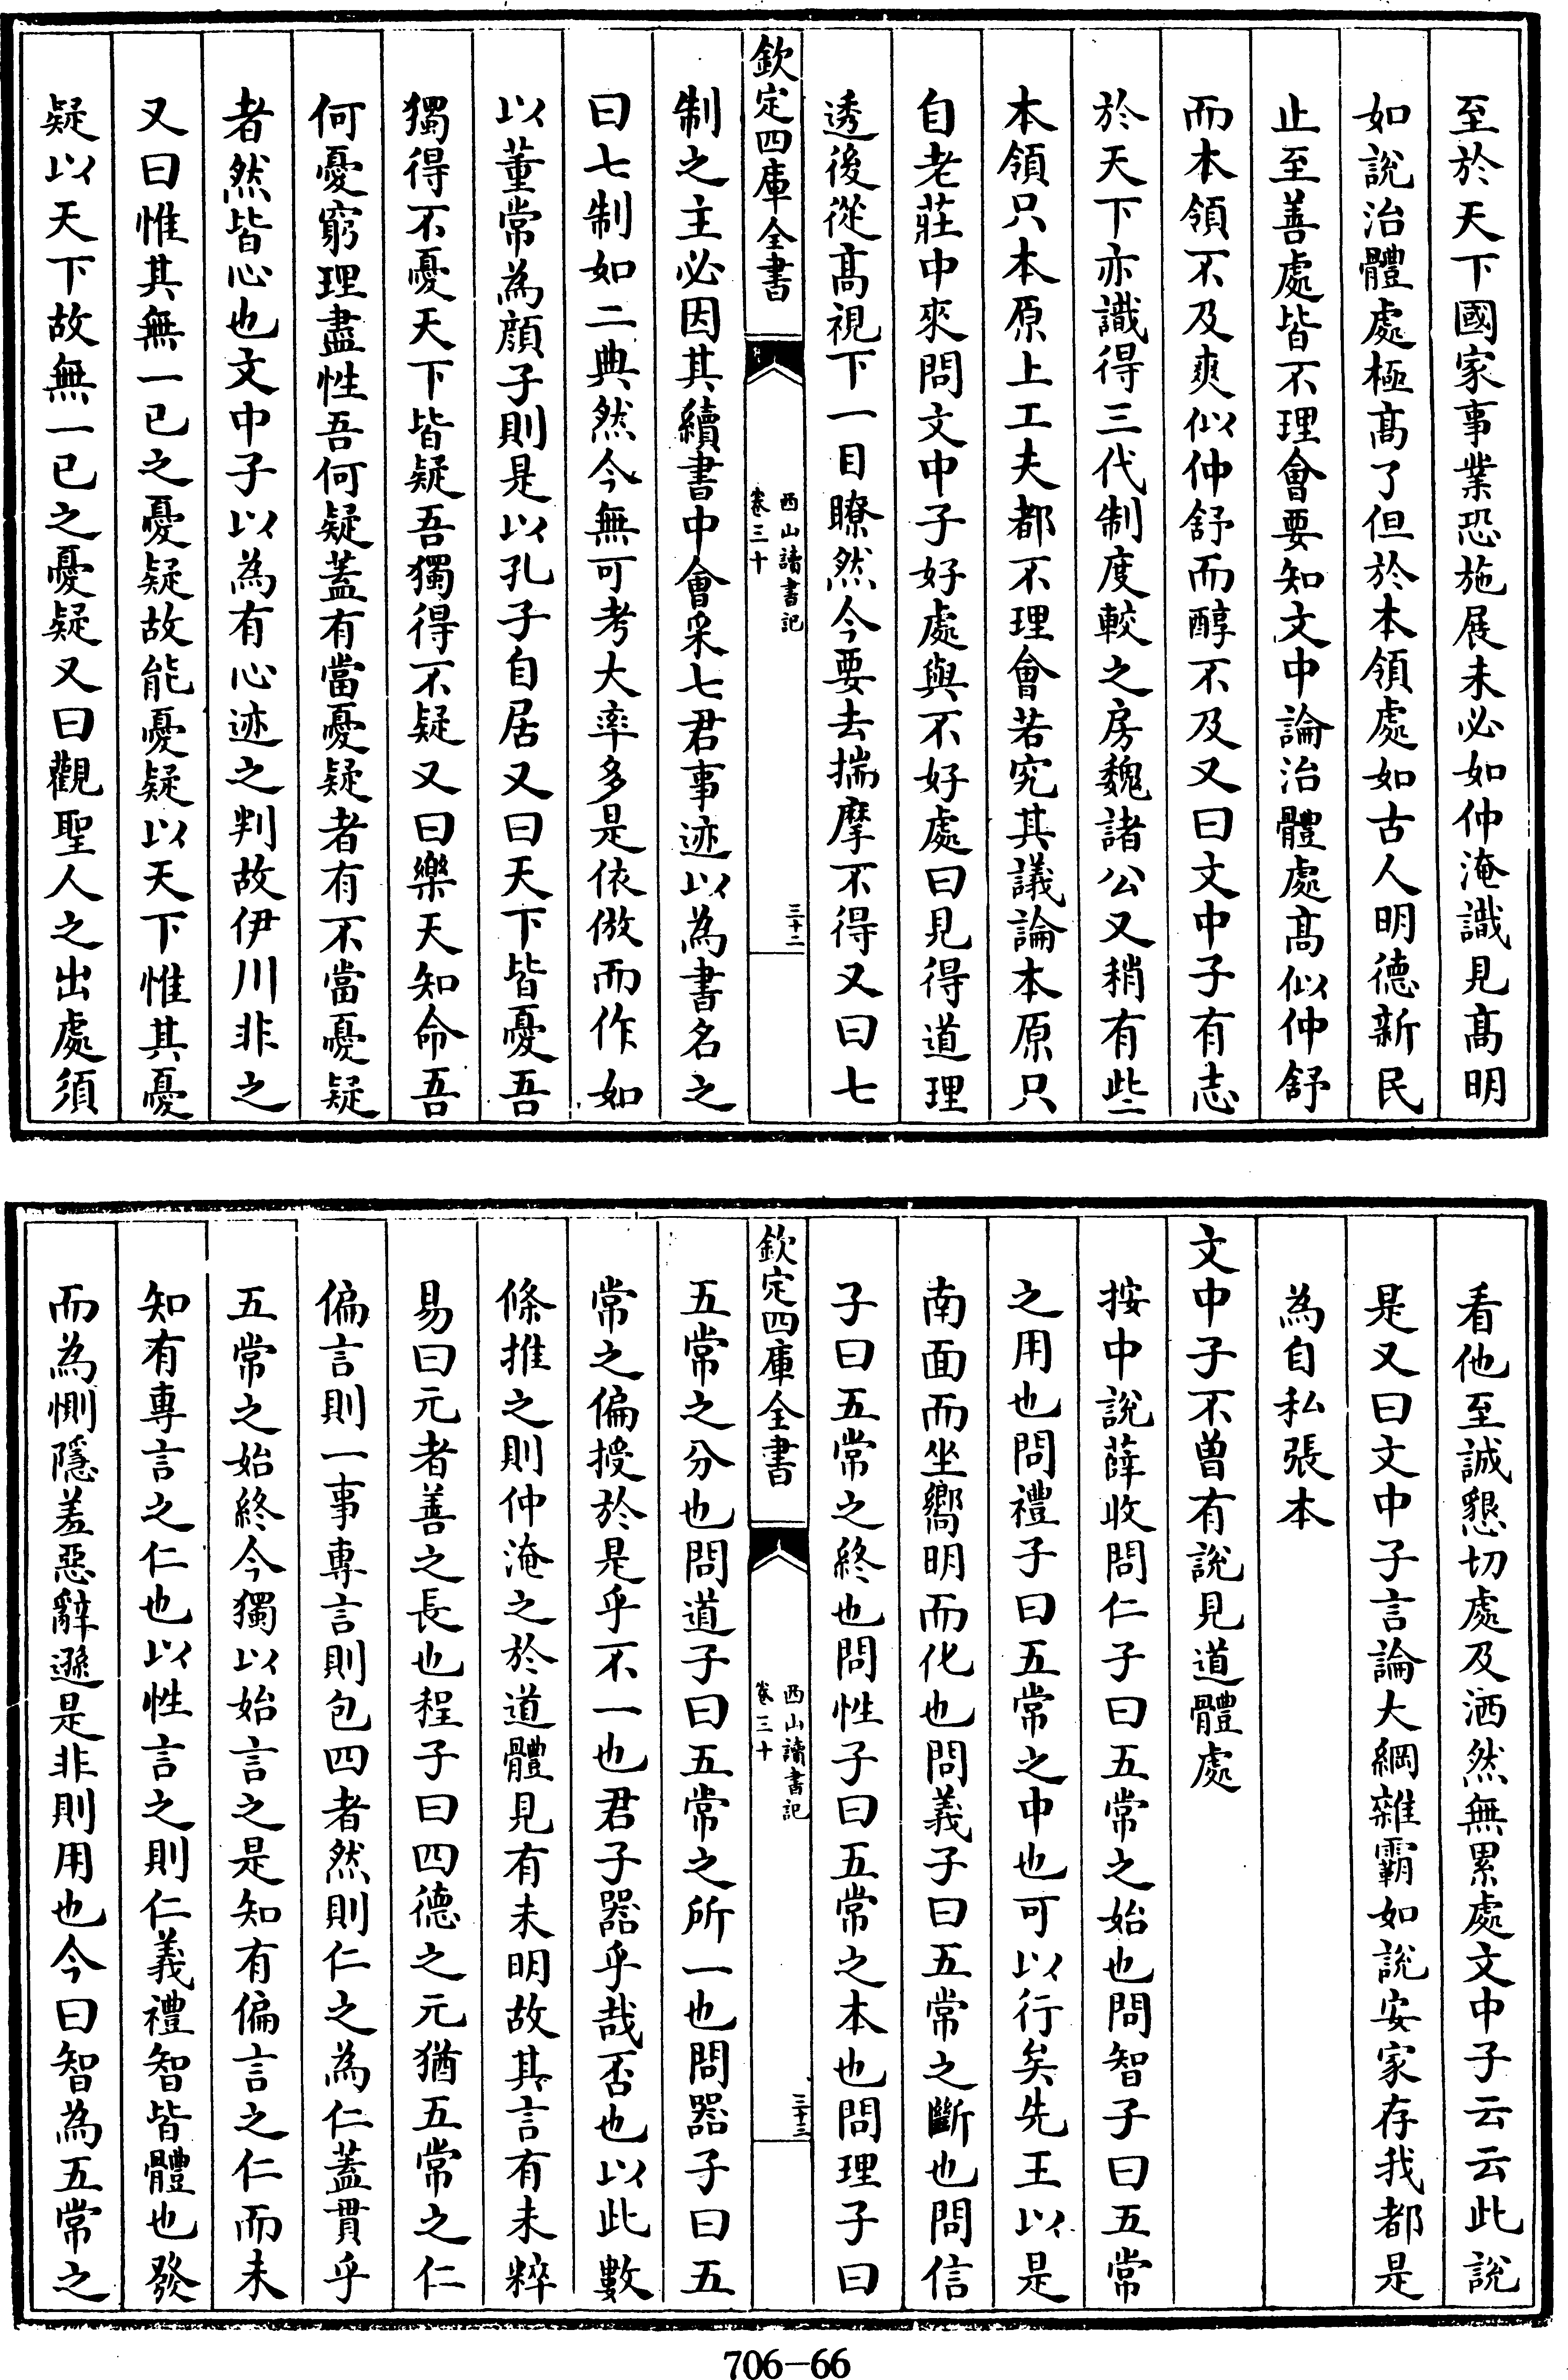 至於天下國家事業恐施展未必如仲淹識見髙明
如說治體處極髙了但於本領處如古人明德新民
止至善處皆不理會要知文中論治體處髙似仲舒
而本領不及爽似仲舒而醇不及又曰文中子有志
於天下亦識得三代制度較之房魏諸公又稍有些
本領只本原上工夫都不理會若究其議論本原只
自老莊中來問文中子好處與不好處曰見得道理
透後從髙視下一目瞭然今要去揣摩不得又曰七
欽定四庫全書
西山讀書記
卷三十
三十二
制之主必因其續書中會采七君事迹以為書名之
曰七制如二典然今無可考大率多是依倣而作如
以董常為顔子則是以孔子自居又曰天下皆憂吾
獨得不憂天下皆疑吾獨得不疑又曰樂天知命吾
何憂窮理盡性吾何疑蓋有當憂疑者有不當憂疑
者然皆心也文中子以為有心迹之判故伊川非之
又曰惟其無一已之憂疑故能憂疑以天下惟其憂
疑以天下故無一已之憂疑又曰觀聖人之出處須
看他至誠懇切處及洒然無累處文中子云云此說
是又曰文中子言論大綱雜霸如說安家存我都是
為自私張本
文中子不曽有說見道體處
按中說薛收問仁子曰五常之始也問智子曰五常
之用也問禮子曰五常之中也可以行矣先王以是
南面而坐嚮明而化也問義子曰五常之斷也問信
子曰五常之終也問性子曰五常之本也問理子曰
欽定四庫全書
西山讀書記
卷三十
三十三
五常之分也問道子曰五常之所一也問器子曰五
常之偏授於是乎不一也君子器乎哉否也以此數
條推之則仲淹之於道體見有未明故其言有未粹
易曰元者善之長也程子曰四德之元猶五常之仁
偏言則一事專言則包四者然則仁之為仁蓋貫乎
五常之始終今獨以始言之是知有偏言之仁而未
知有專言之仁也以性言之則仁義禮智皆體也發
而為惻隱羞惡辭遜是非則用也今曰智為五常之
706-66